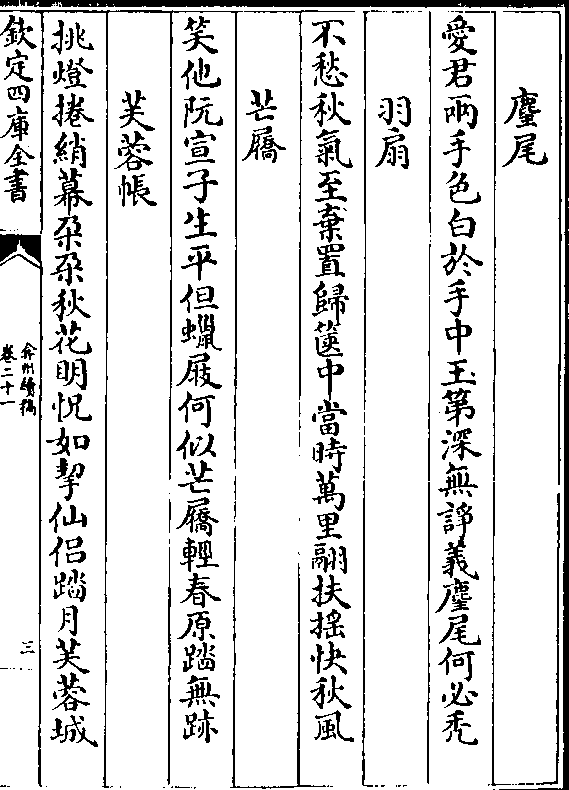 麈尾
愛君兩手色白於手中玉第深無諍義麈尾何必禿
羽扇
不愁秋氣至棄置歸篋中當時萬里翮扶搖快秋風
芒屩
笑他阮宣子生平但蠟屐何似芒屩輕春原踏無跡
芙蓉帳
挑燈捲綃幕朶朶秋花明怳如挈仙侣踏月芙蓉城
欽定四庫全書
弇州續稿
卷二十一
三